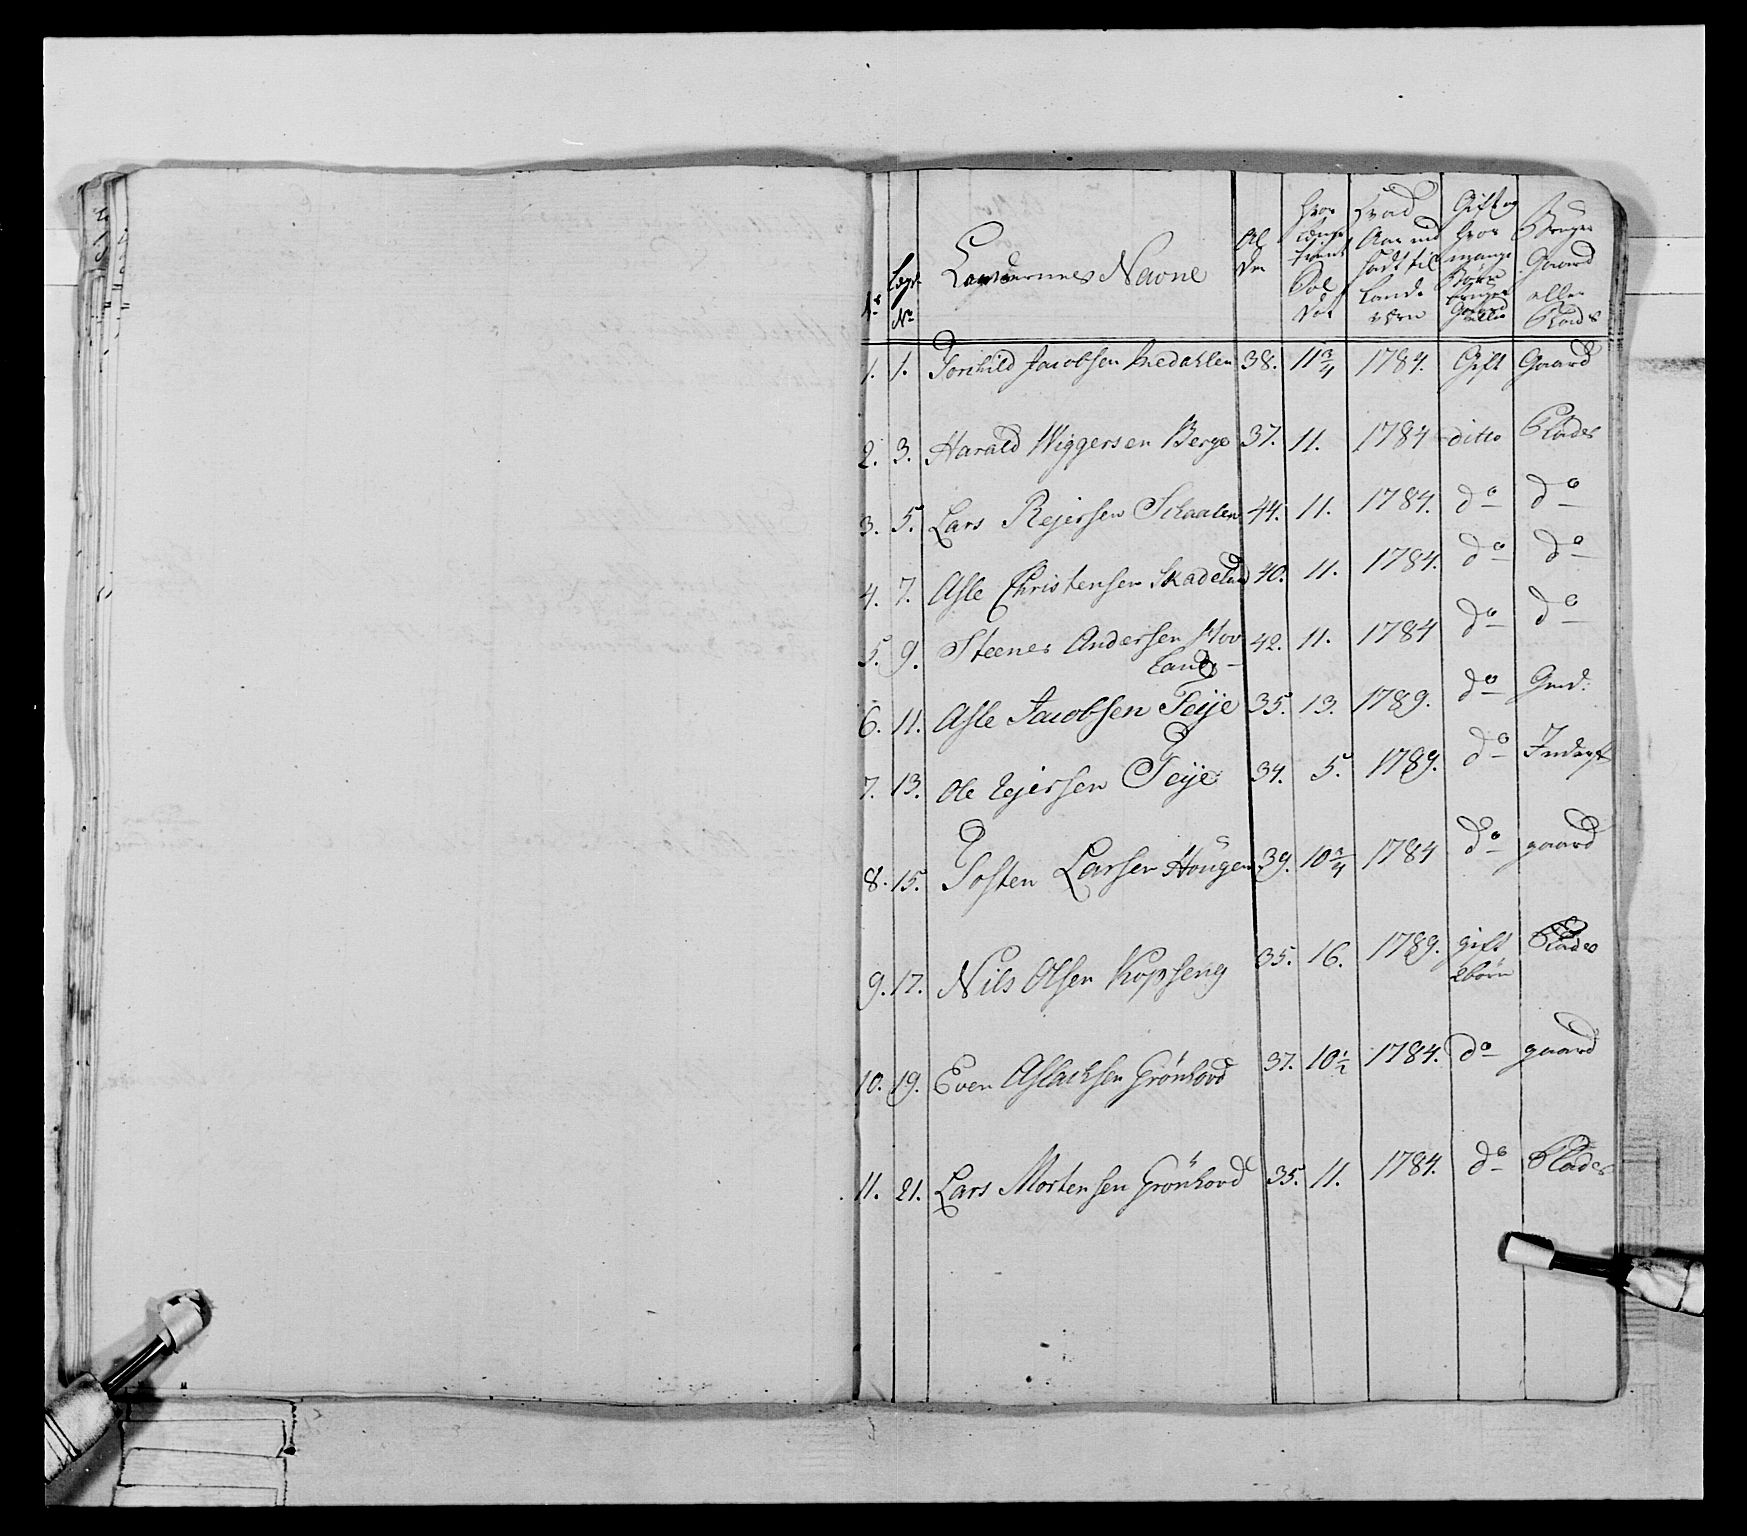 No
Lægd No
Lægdernes Navne
Alder
Hvor længe tient Soldat
Hvad Aar indsadt til Landeværn
Gift og hvor mange Børn
Bruger Gaard eller Plads
1. 1. Torchild Jacobsen Bredahlen 38. 11 3/4 1784. Gift Gaard
2. 3. Harald Wiggersen Berge 37. 11. 1784 ditto Plads
3. 5. Lars Rejersen Schaalen 44. 11. 1784. do do
4. 7. Asle Christensen Skadelan 40. 11. 1784. do do
5. 9. Steener Andersen Hov 42. 11. 1784 do do
land
6. 11. Asle Jacobsen Feije 35. 13. 1789. do Grd:
7. 13. Ole Ejersen Feije 34. 5. 1789. do Inderst
8. 15. Tosten Larsen Hougen 39. 10 3/4 1784 do gaard
9. 17. Nils Olsen Kopseng 35. 16. 1789. gift Plads
2 börn
10. 19. Even Aslachsen Grönhovd 37. 10 1/2 1784. do gaard
11. 21. Lars Mortensen Grönhovd 35. 11. 1784. do Plads